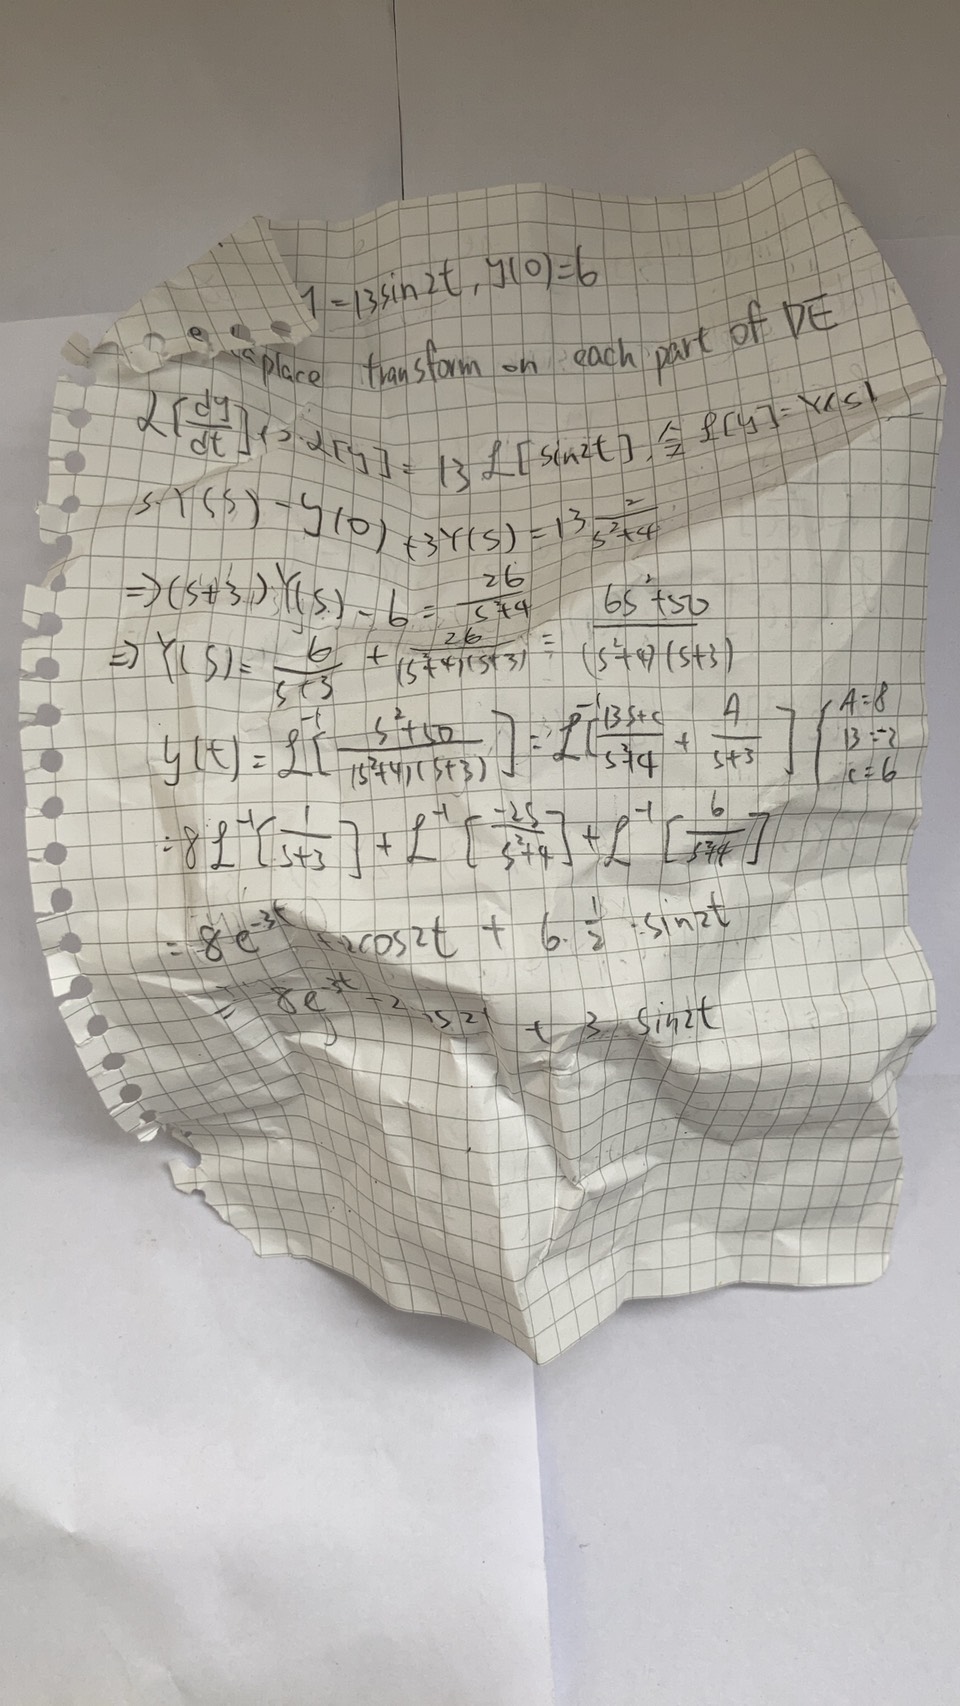 y = 13sin2t, y(0)=6
aplace transform on each part of DE
ℒ[dy/dt]+3·ℒ[y] = 13 ℒ[sin2t], 令 ℒ[y]=Y(s)
s·Y(s) - y(0) + 3Y(s) = 13 2/(s²+4)
⇒ (s+3) Y(s) - 6 = 26/(s²+4)
⇒ Y(s) = 6/(s+3) + 26/((s²+4)(s+3)) = (6s²+50)/((s²+4)(s+3))
y(t) = ℒ⁻¹[(s²+50)/((s²+4)(s+3))] = ℒ⁻¹[(Bs+c)/(s²+4) + A/(s+3)] { A=8 B=-2 c=6
= 8 ℒ⁻¹[1/(s+3)] + ℒ⁻¹[-2s/(s²+4)] + ℒ⁻¹[6/(s²+4)]
= 8e⁻³ᵗ 2cos2t + 6·1/2·sin2t
= 8e⁻³ᵗ - 2 s2t + 3 sin2t